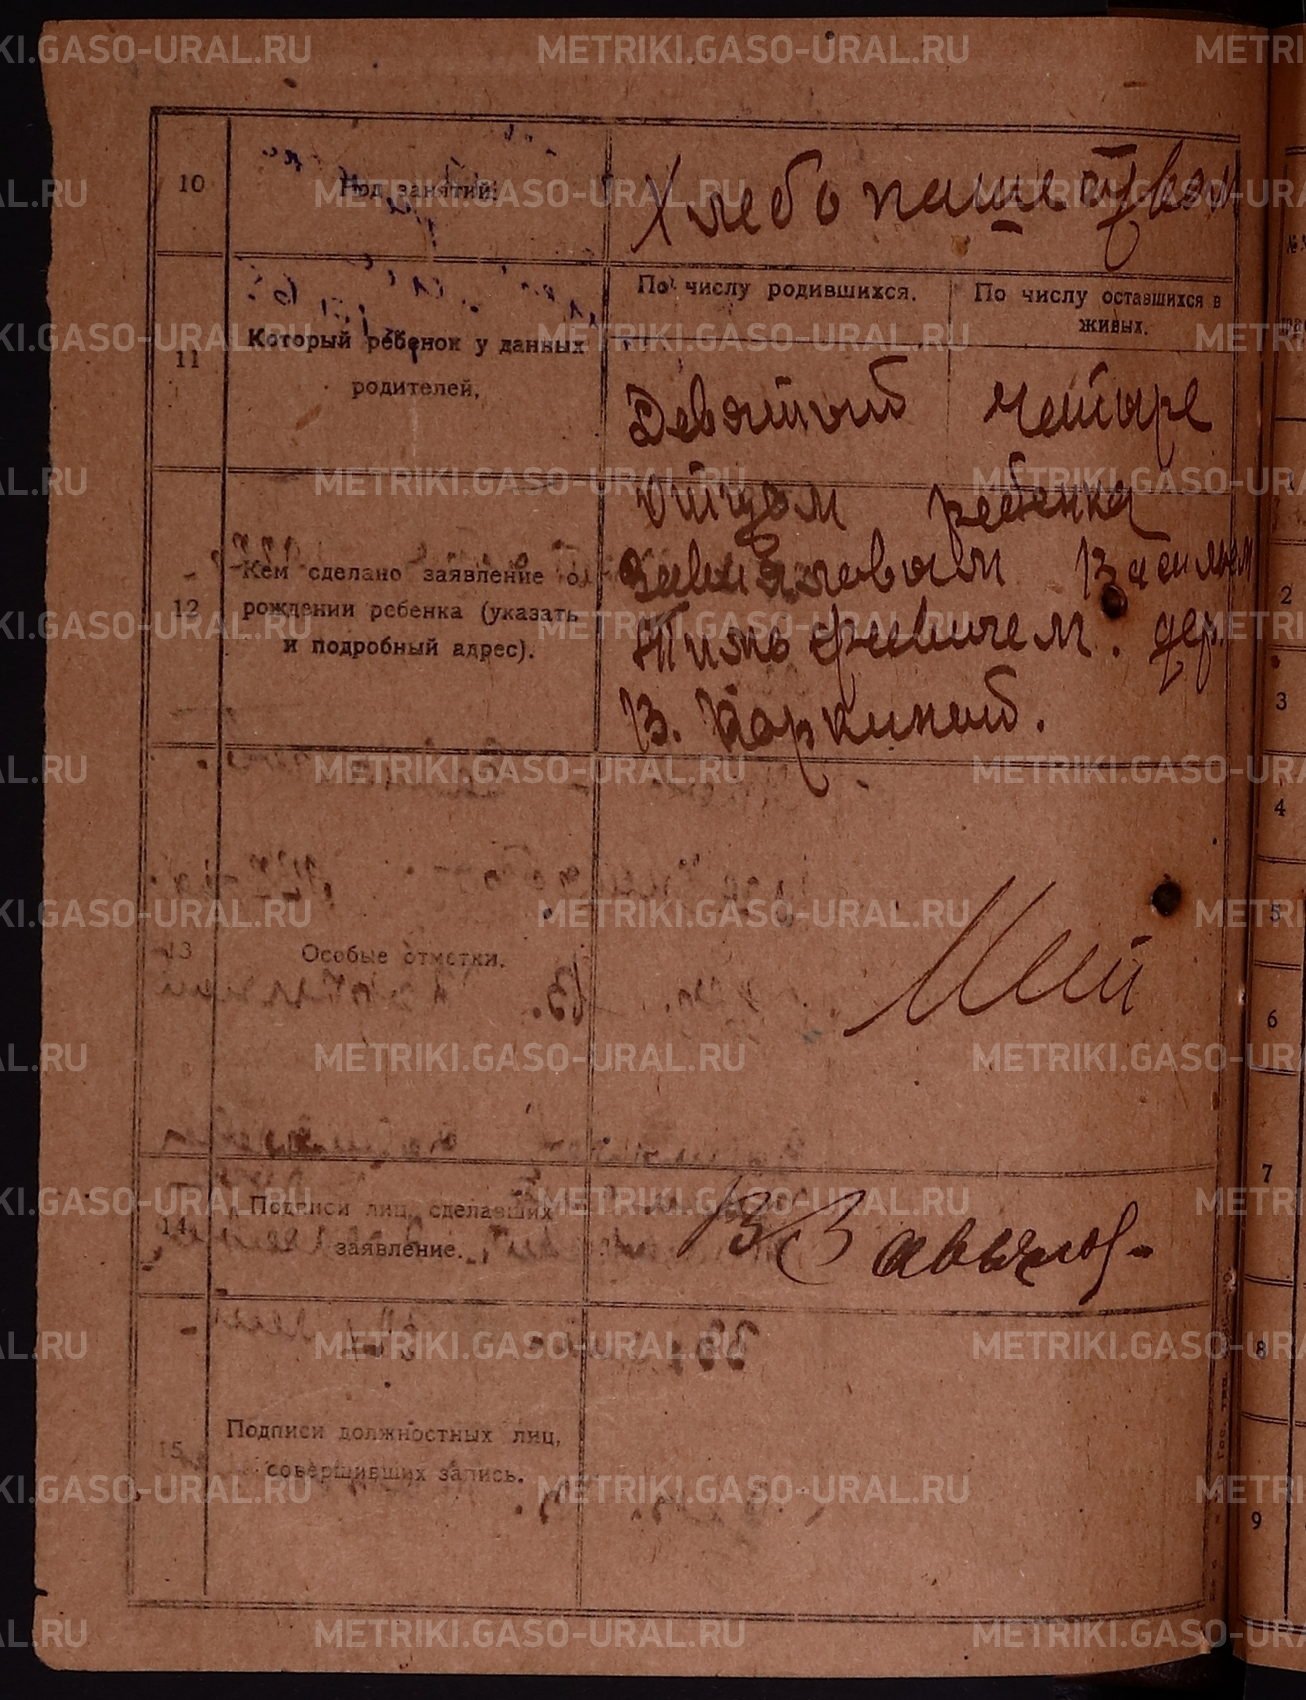 10
Род занятий:
Хлебопашеством
11
Который ребенок у данных
родителей.
По числу родившихся.
По числу оставшихся в
живых.
Девятый
Четыре
12
Кем сделано заявление о
рождении ребенка (указать
и подробный адрес).
Отцом ребенка
Завьяловым Василием
Тимофеевичем. дер.
В.
13
Особые отметки.
14
Подписи лиц, сделавших
заявление.
В Завьялов
15
Подписи должностных лиц,
совершивших запись.
2
3
4
5
6
7
8
9
METRIKI.GASO-URAL.RU